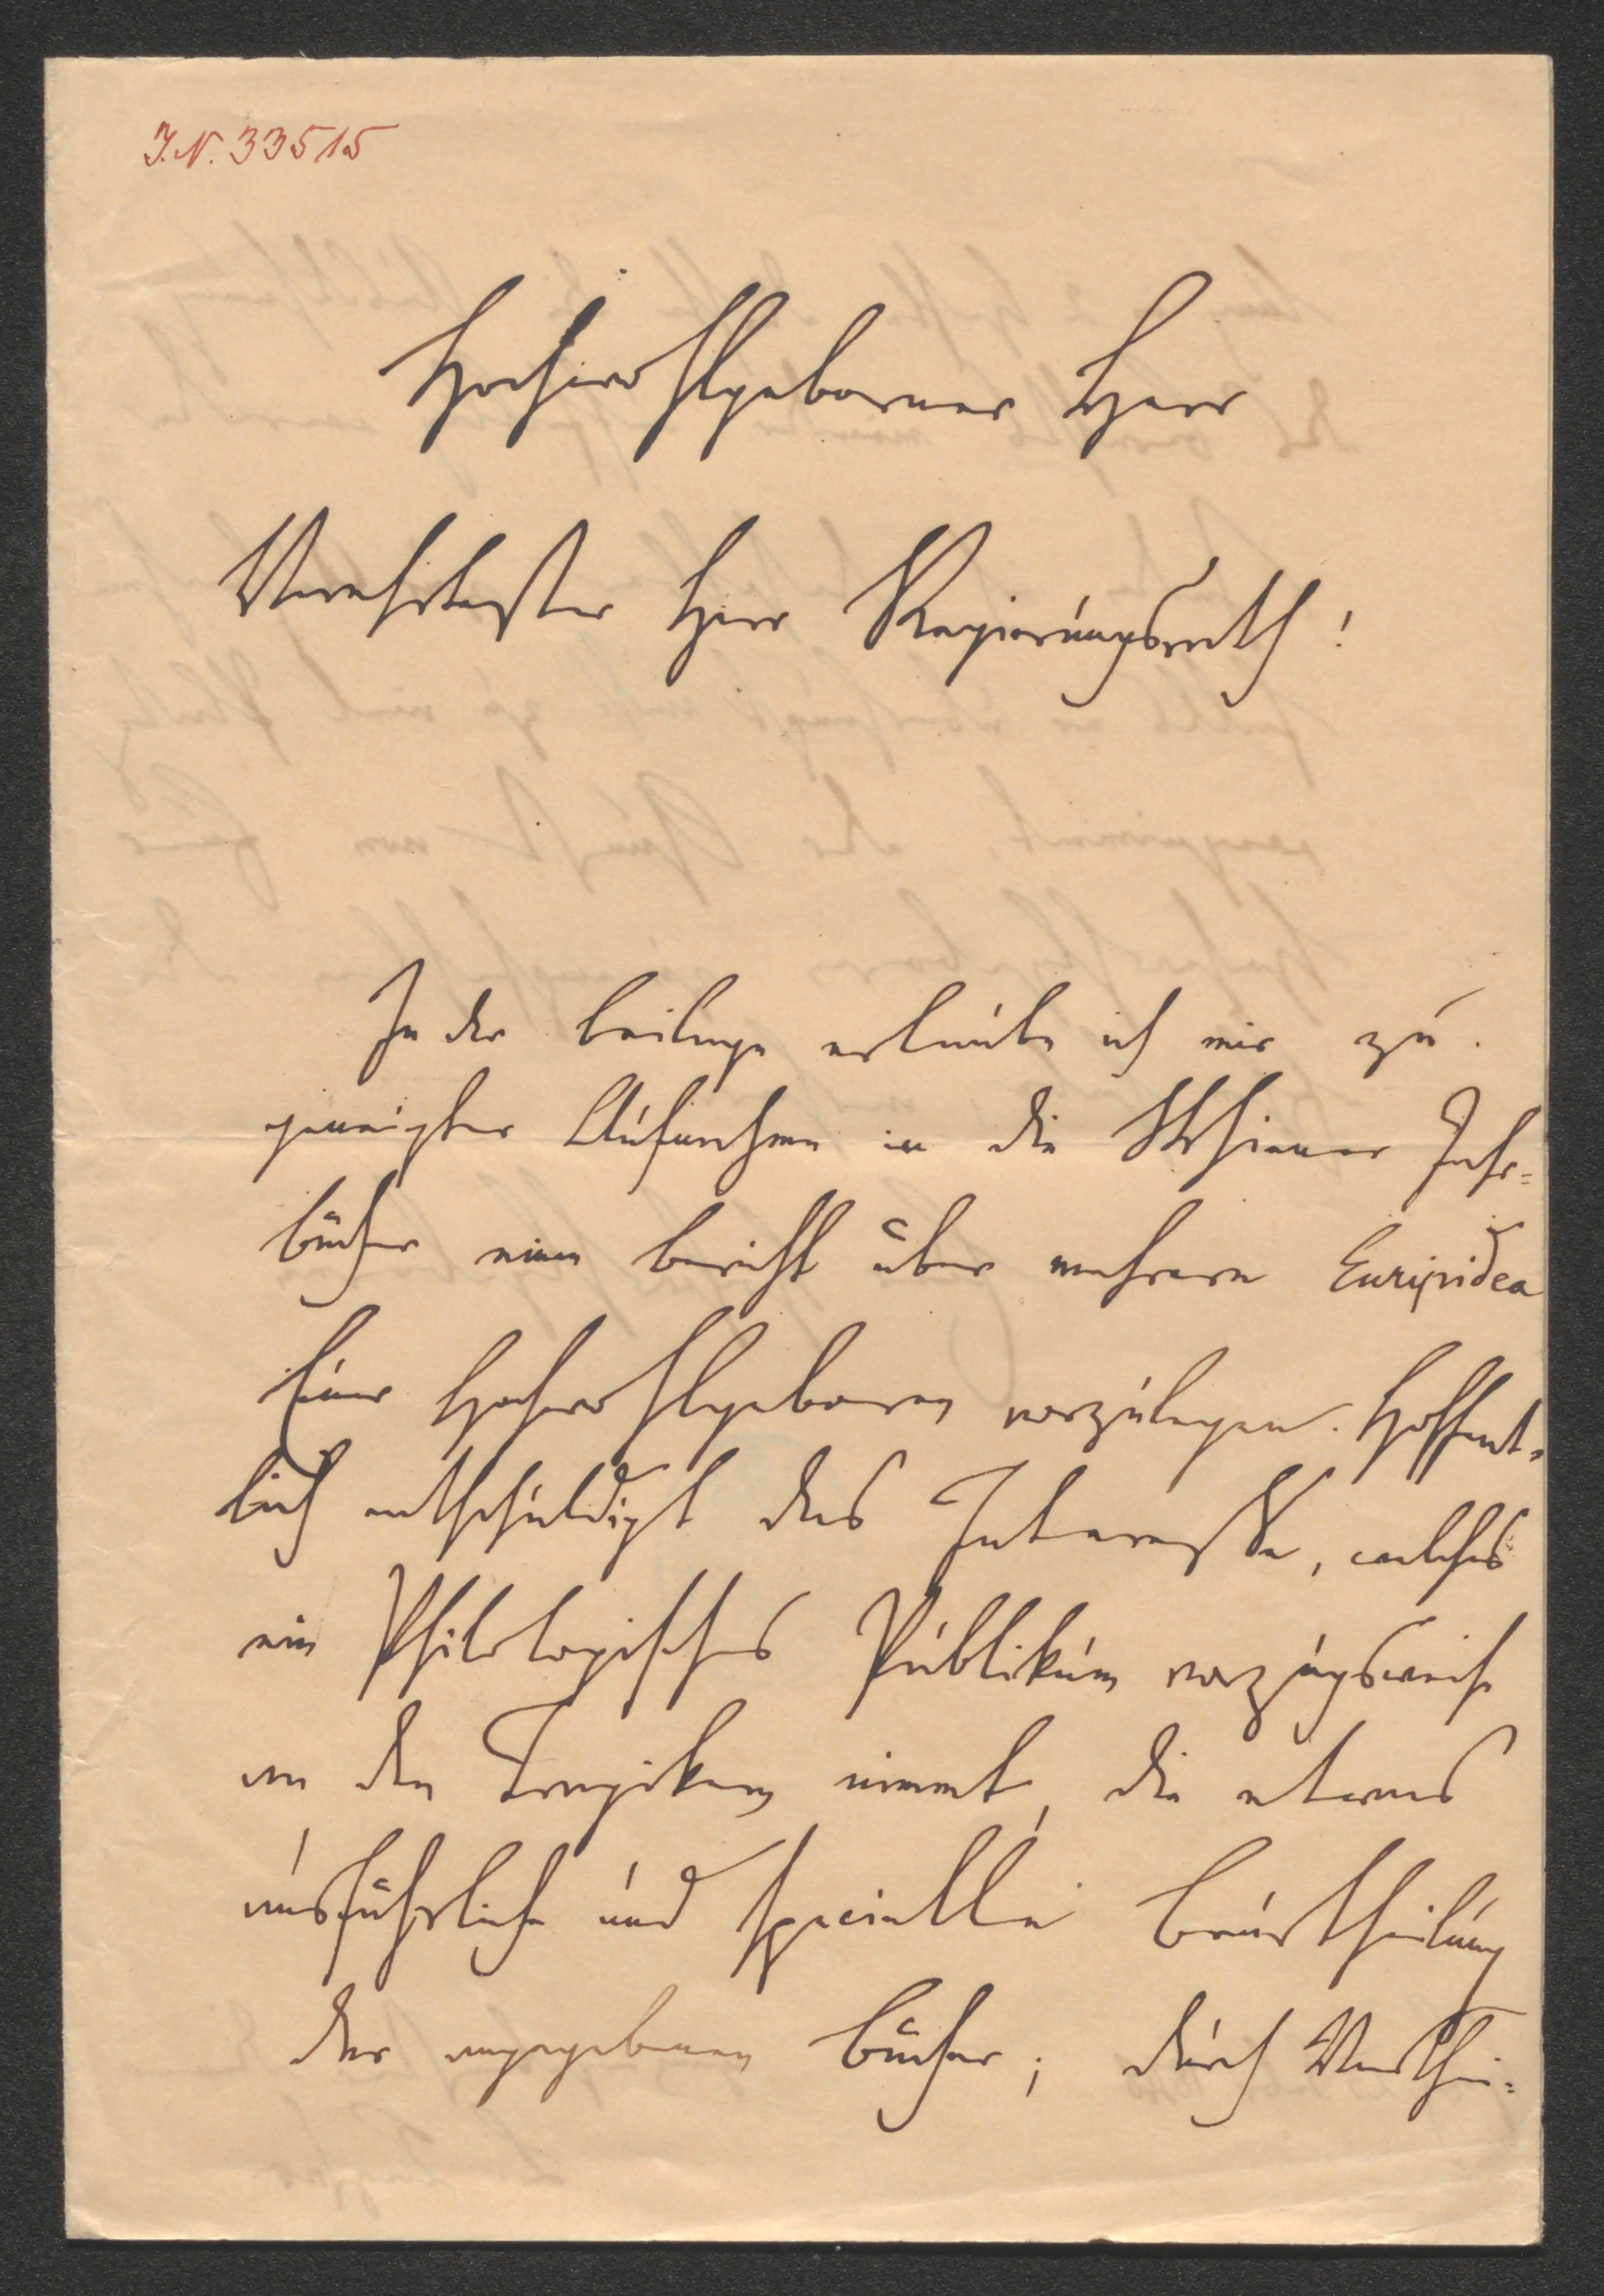 J.N. 33515
Hochwohlgeborner Herr
Verehrtester Herr Regierungsrath!
In der Beilage erlaube ich mir zu
geneigter Aufnahme in die Wiener Jahr=
bücher einen Bericht über mehrere Euripidea
Euer Hochwohlgeboren vorzulegen. Hoffent=
lich entschuldigt das Interesse, welches
ein Philologisches Publikum vorzugsweise
an den Tragikern nimmt, die etwas
ausführliche und specielle Beurtheilung
der angegebenen Bücher; durch Verthei=